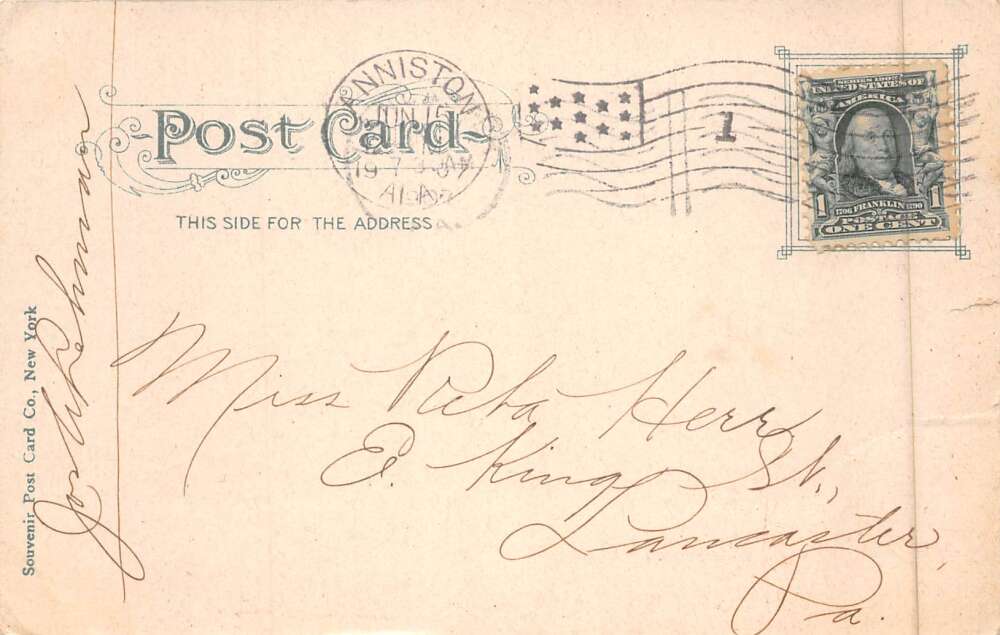 Post Card
THIS SIDE FOR THE ADDRESS
ANNISTON
JUN
19 7
ALA.
1
SERIES 1902
UNITED STATES OF
AMERICA
1 1706 FRANKLIN 1790 1
POSTAGE
ONE CENT
Miss Reba Herr
E. King St.,
Lancaster
Pa.
Souvenir Post Card Co., New York